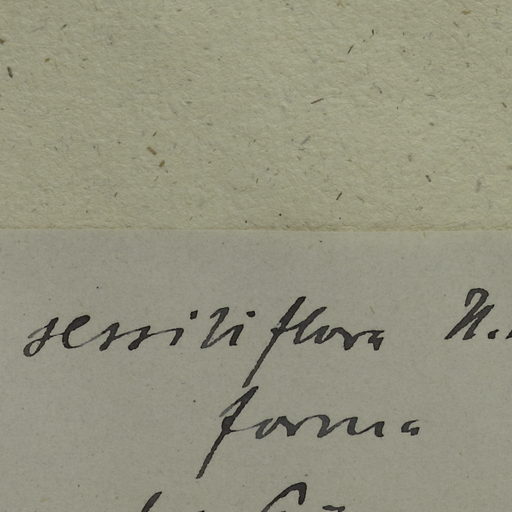 sessiliflora N.
forma